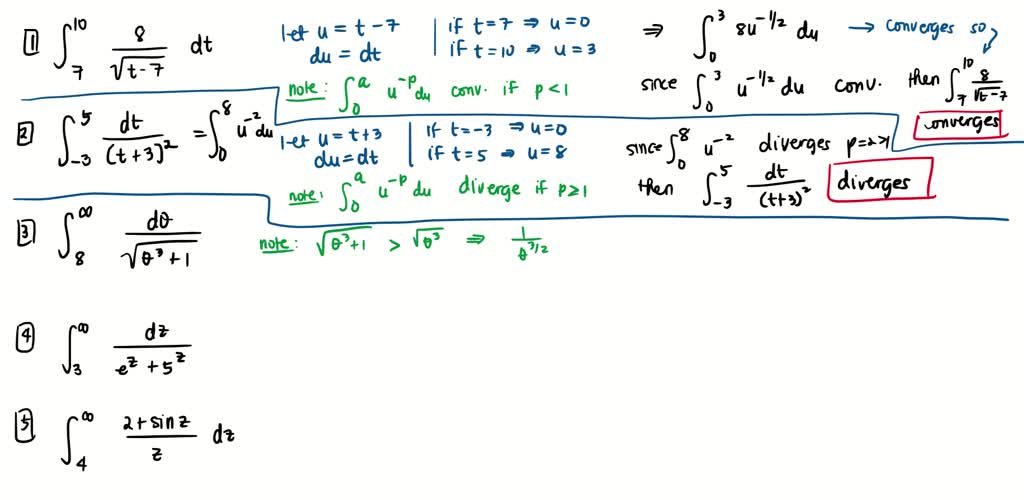 1 ∫_7^10 8/√(t-7) dt let u = t-7 if t=7 ⇒ u=0 ⇒ ∫_0^3 8u^(-1/2) du → converges so
du = dt if t=10 ⇒ u=3
note: ∫_0^a u^(-p) du conv. if p<1 since ∫_0^3 u^(-1/2) du conv. then ∫_7^10 8/√(t-7)
converges
2 ∫_-3^5 dt/(t+3)^2 = ∫_0^8 u^(-2) du let u = t+3 if t=-3 ⇒ u=0 since ∫_0^8 u^(-2) diverges p=2>1
du=dt if t=5 ⇒ u=8
note: ∫_0^a u^(-p) du diverge if p≥1 then ∫_-3^5 dt/(t+3)^2 diverges
3 ∫_8^∞ dθ/√(θ^3+1) note: √(θ^3+1) > √θ^3 ⇒ 1/θ^(3/2)
4 ∫_3^∞ dz/(e^z + 5^z)
5 ∫_4^∞ (2+sinz)/z dz